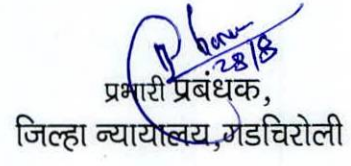 28/8
प्रभारी प्रबंधक,
जिल्हा न्यायालय,गडचिरोली